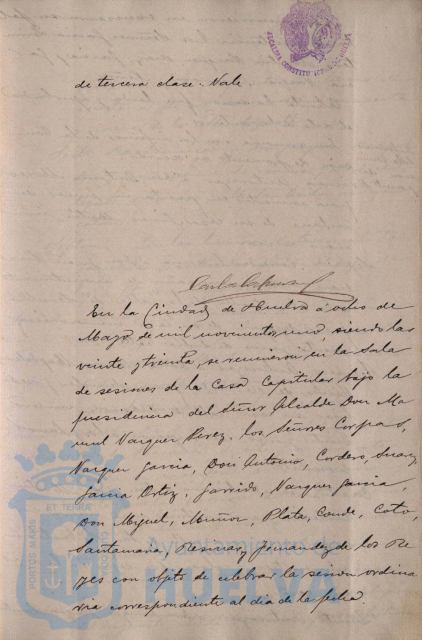 ALCALDIA CONSTITUCIONAL HUELVA
de tercera clase. Vale.
En la Ciudad de Huelva á ocho de
Mayo de mil novecientos uno, siendo las
veinte y treinta, se reunieron en la Sala
de sesiones de la Casa Capitular bajo la
presidencia del Señor Alcalde Don Ma
nuel Vazquez Perez, los Señores Corpas,
Vazquez Garcia, Don Antonio, Cordero, Suarez,
Garcia Ortiz, Garrido, Vazquez Garcia,
Don Miguel, Muñoz, Plata, Conde, Coto,
Santamaria, y Fernandez de los Re
yes con objeto de celebrar la sesion ordina
ria correspondiente al dia de la fecha.
PORTUS MARIS ET TERRAE
Ayuntamiento de
HUELVA